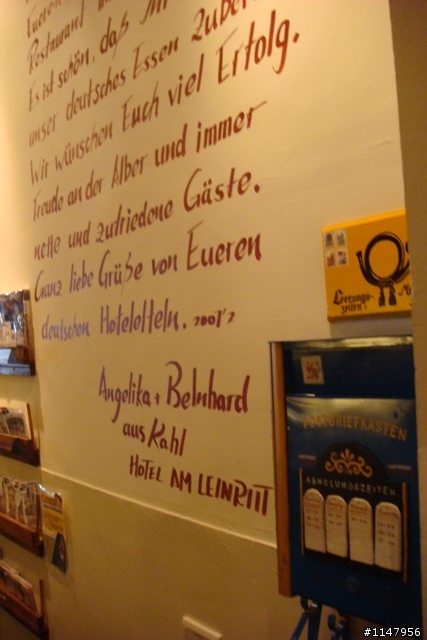 Eueren
Restaurant
Es ist schön, daß Ihr
unser deutsches Essen zuber
Wir wünschen Euch viel Erfolg.
Freude an der Alber und immer
nette und zufriedene Gäste.
Ganz liebe Grüße von Eueren
deutschen Hoteleltern. 2007/2
Angelika + Bernhard
aus Kahl
HOTEL AM LEINRITT
Leerungs-
zeiten
BRIEFKASTEN
ABHOLUNGSZEITEN
#1147956